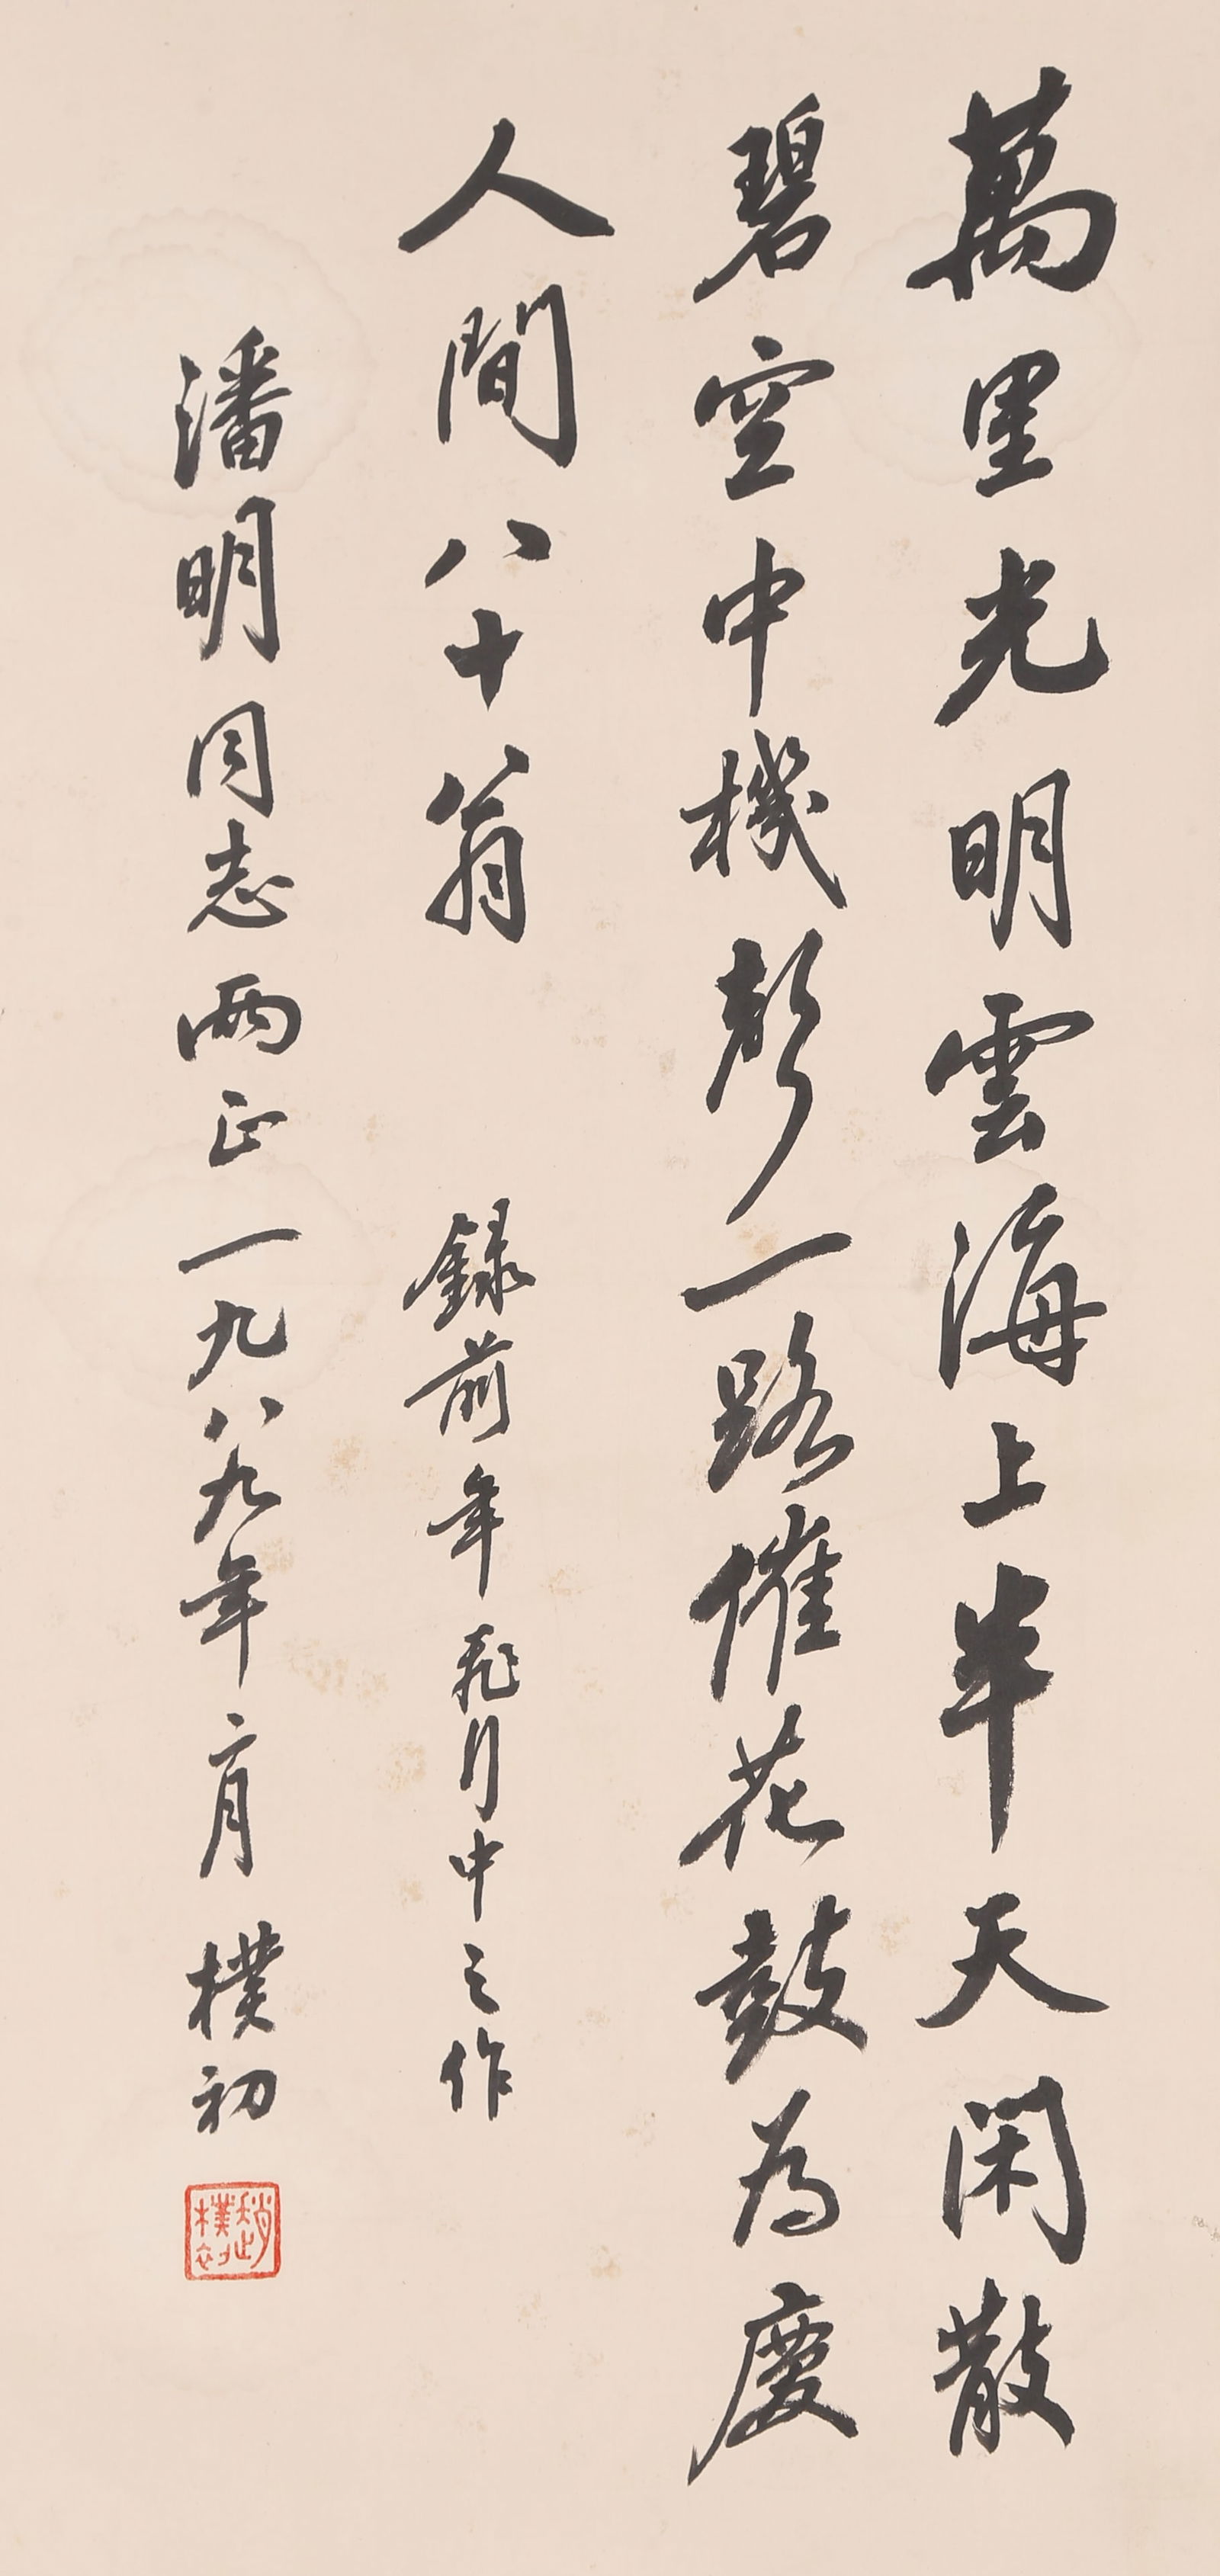 萬里光明雲海上半天閑散
碧空中機聲一路催花鼓為慶
人間八十翁
錄前年飛行中之作
潘明同志兩正一九八九年二月樸初
趙樸初